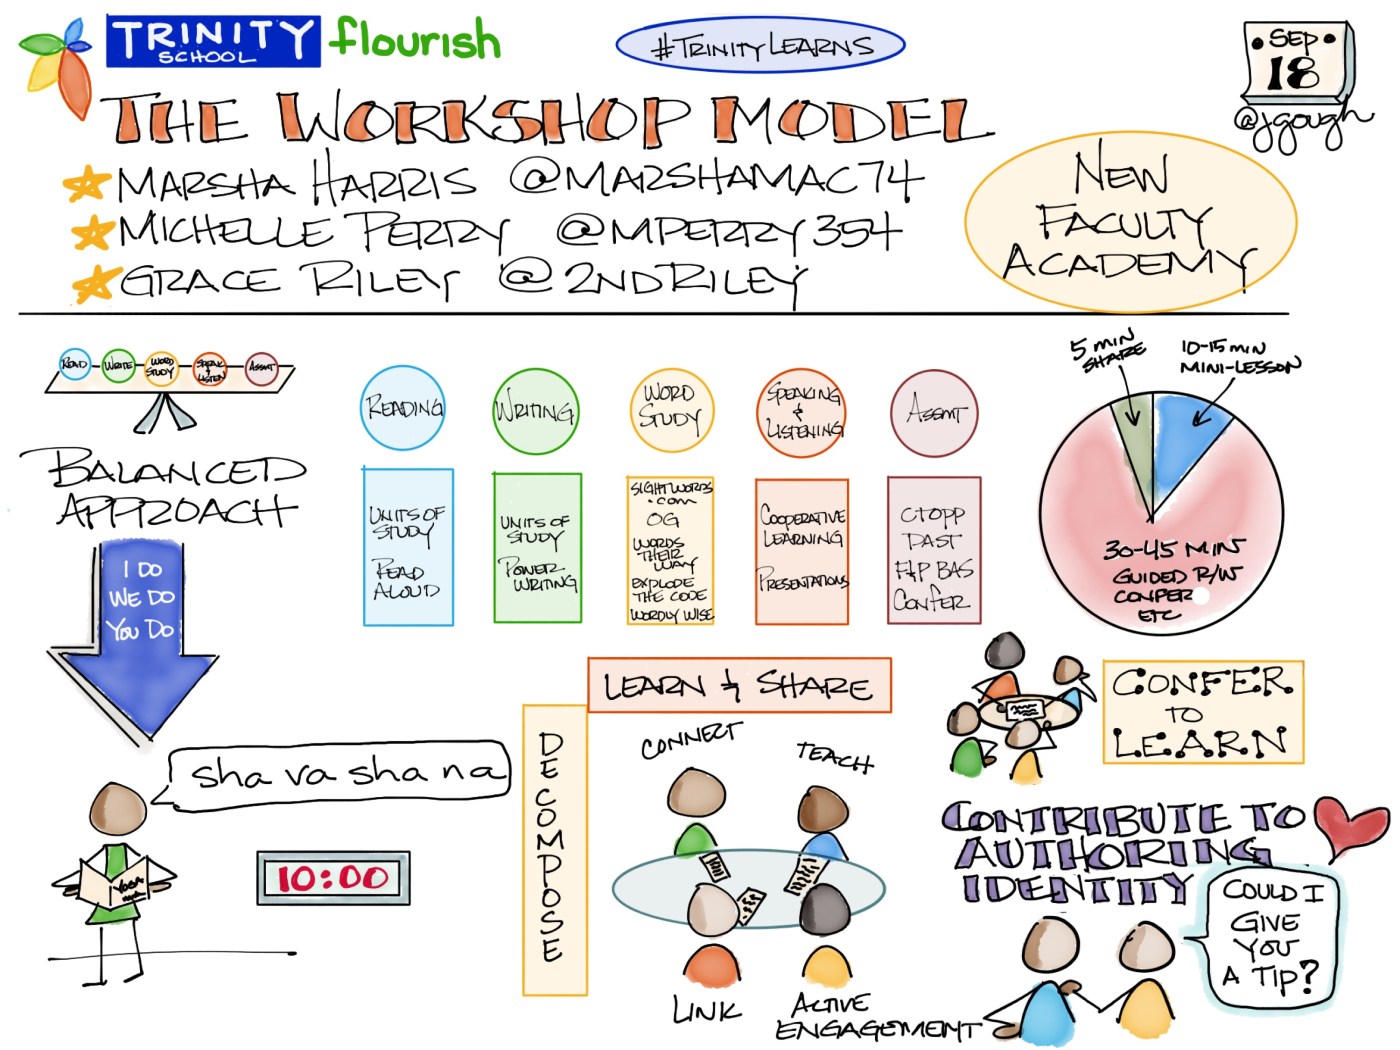 TRINITY
SCHOOL
flourish
#TRINITYLEARNS
SEP
18
@jgough
THE WORKSHOP MODEL
MARSHA HARRIS @MARSHAMAC74
MICHELLE PERRY @MPERRY354
GRACE RILEY @2NDRILEY
NEW
FACULTY
ACADEMY
READ
WRITE
WORD
STUDY
SPEAK
&
LISTEN
ASSMT
BALANCED
APPROACH
I DO
WE DO
YOU DO
READING
WRITING
WORD
STUDY
SPEAKING
&
LISTENING
ASSMT
UNITS OF
STUDY
READ
ALOUD
UNITS OF
STUDY
POWER
WRITING
SIGHTWORDS
.COM
OG
WORDS
THEIR
WAY
EXPLODE
THE CODE
WORDLY WISE
COOPERATIVE
LEARNING
PRESENTATIONS
CTOPP
PAST
F&P BAS
CONFER
5 MIN
SHARE
10-15 MIN
MINI-LESSON
30-45 MIN
GUIDED R/W
CONFER
ETC
sha va sha na
YOGA
10:00
LEARN & SHARE
DECOMPOSE
CONNECT
TEACH
LINK
ACTIVE
ENGAGEMENT
CONFER
TO
LEARN
CONTRIBUTE TO
AUTHORING
IDENTITY
COULD I
GIVE
YOU
A TIP?